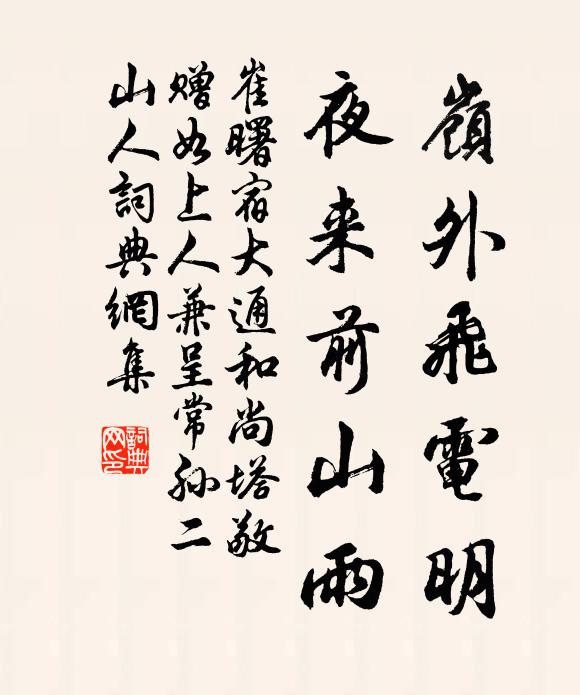 嶺外飛電明
夜来前山雨
崔曙宿大通和尚塔敬
贈如上人兼呈常孙二
山人詞典網集
詞典
网印